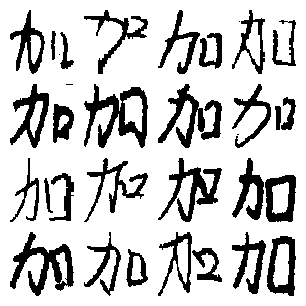 加加加加
加加加加
加加加加
加加加加